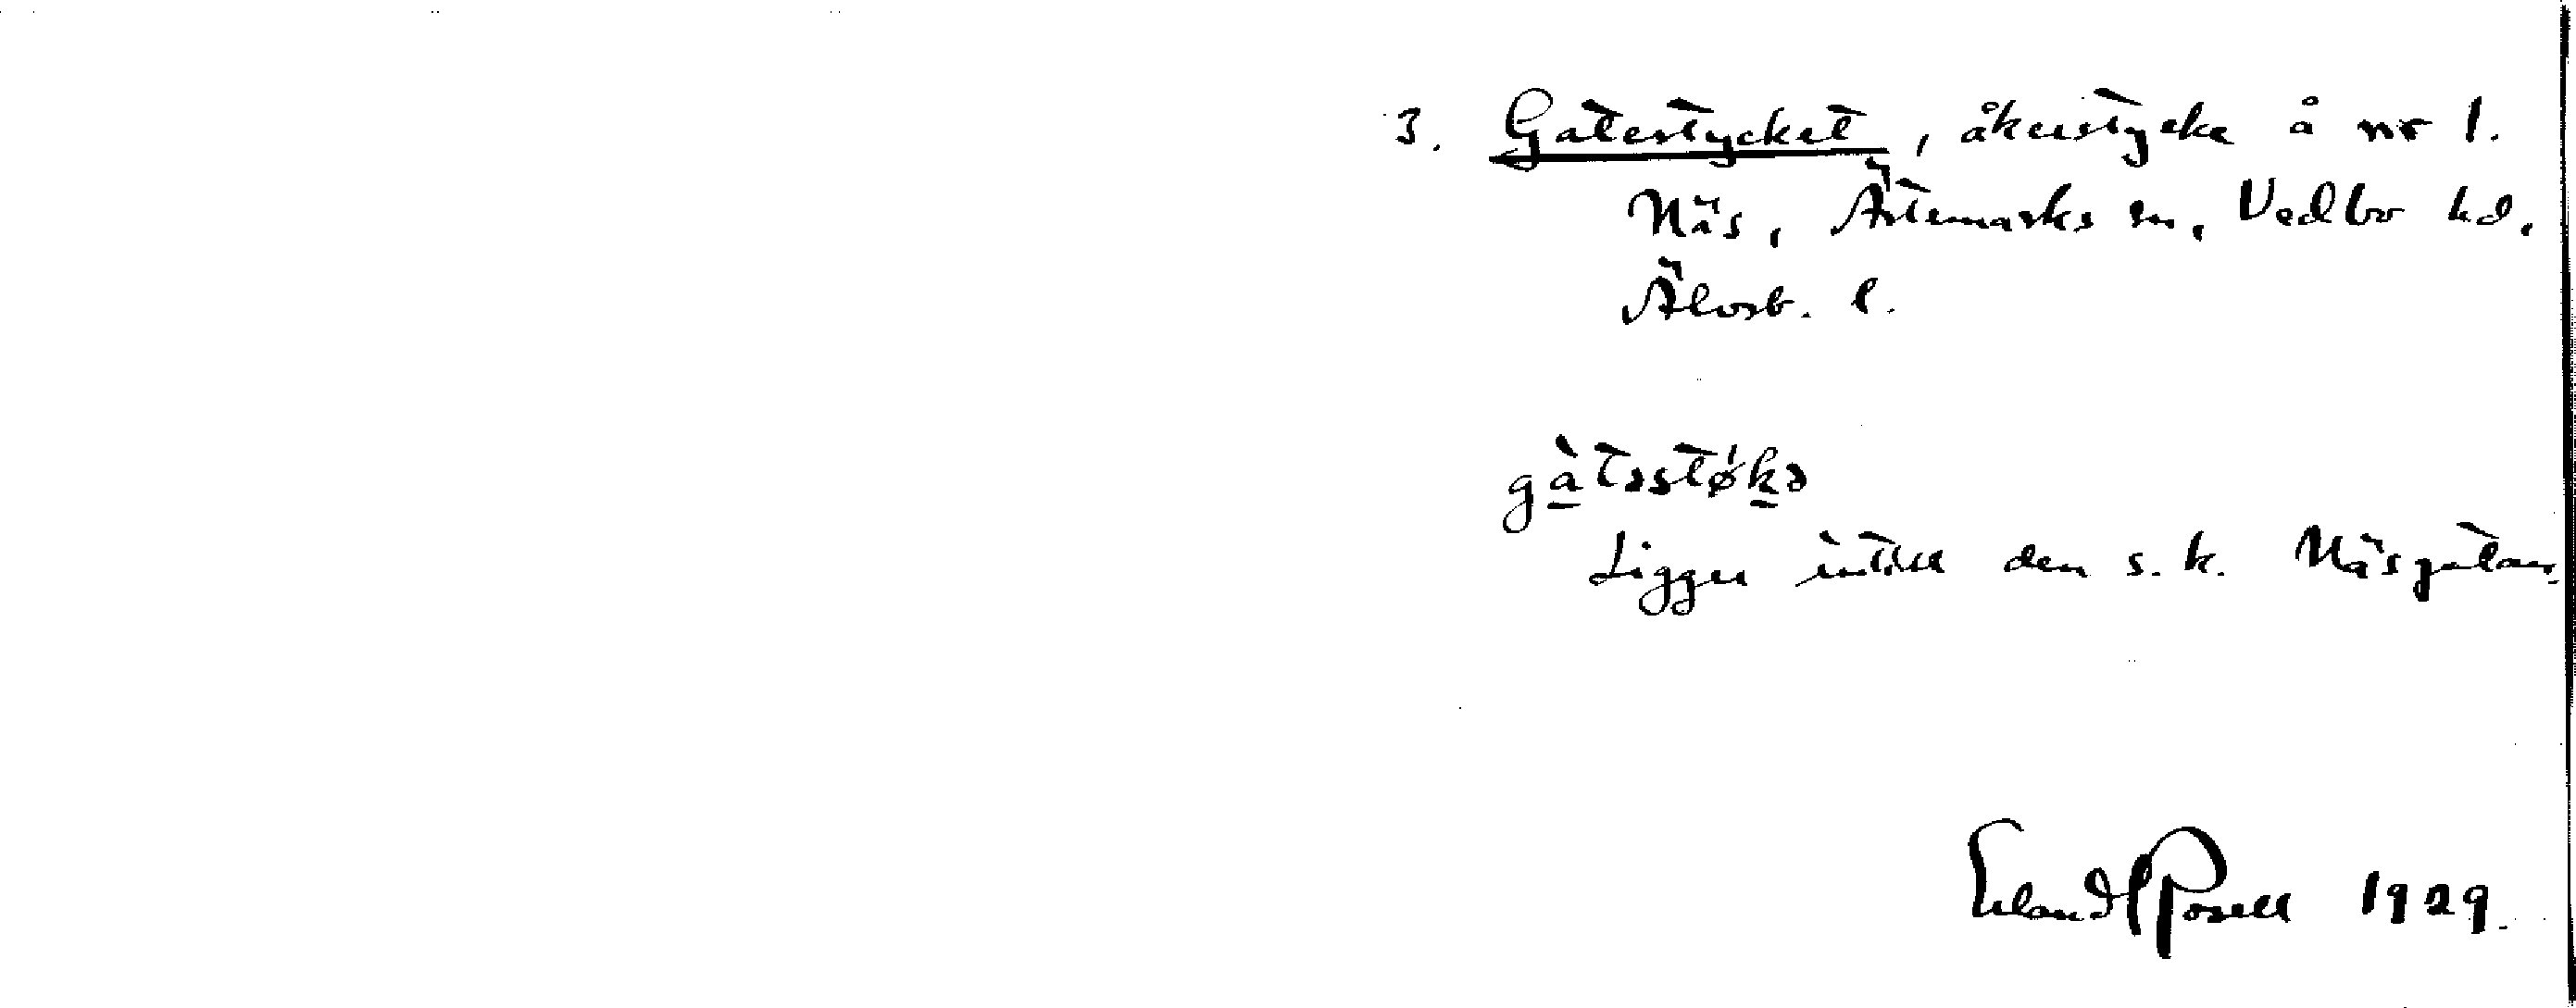 3. Gatestycket, åkerstycke å nr 1.
Näs, Ärtemarks sn, Vedbo hd.
Älvsb. l.
gàtəstǿkə
Ligger intill den s.k. Näsgatan.
Erland Rosell 1929.